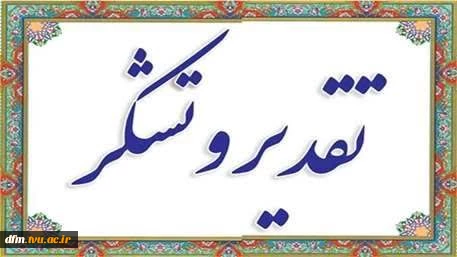 تقدیر و تشکر
dfm.tvu.ac.ir